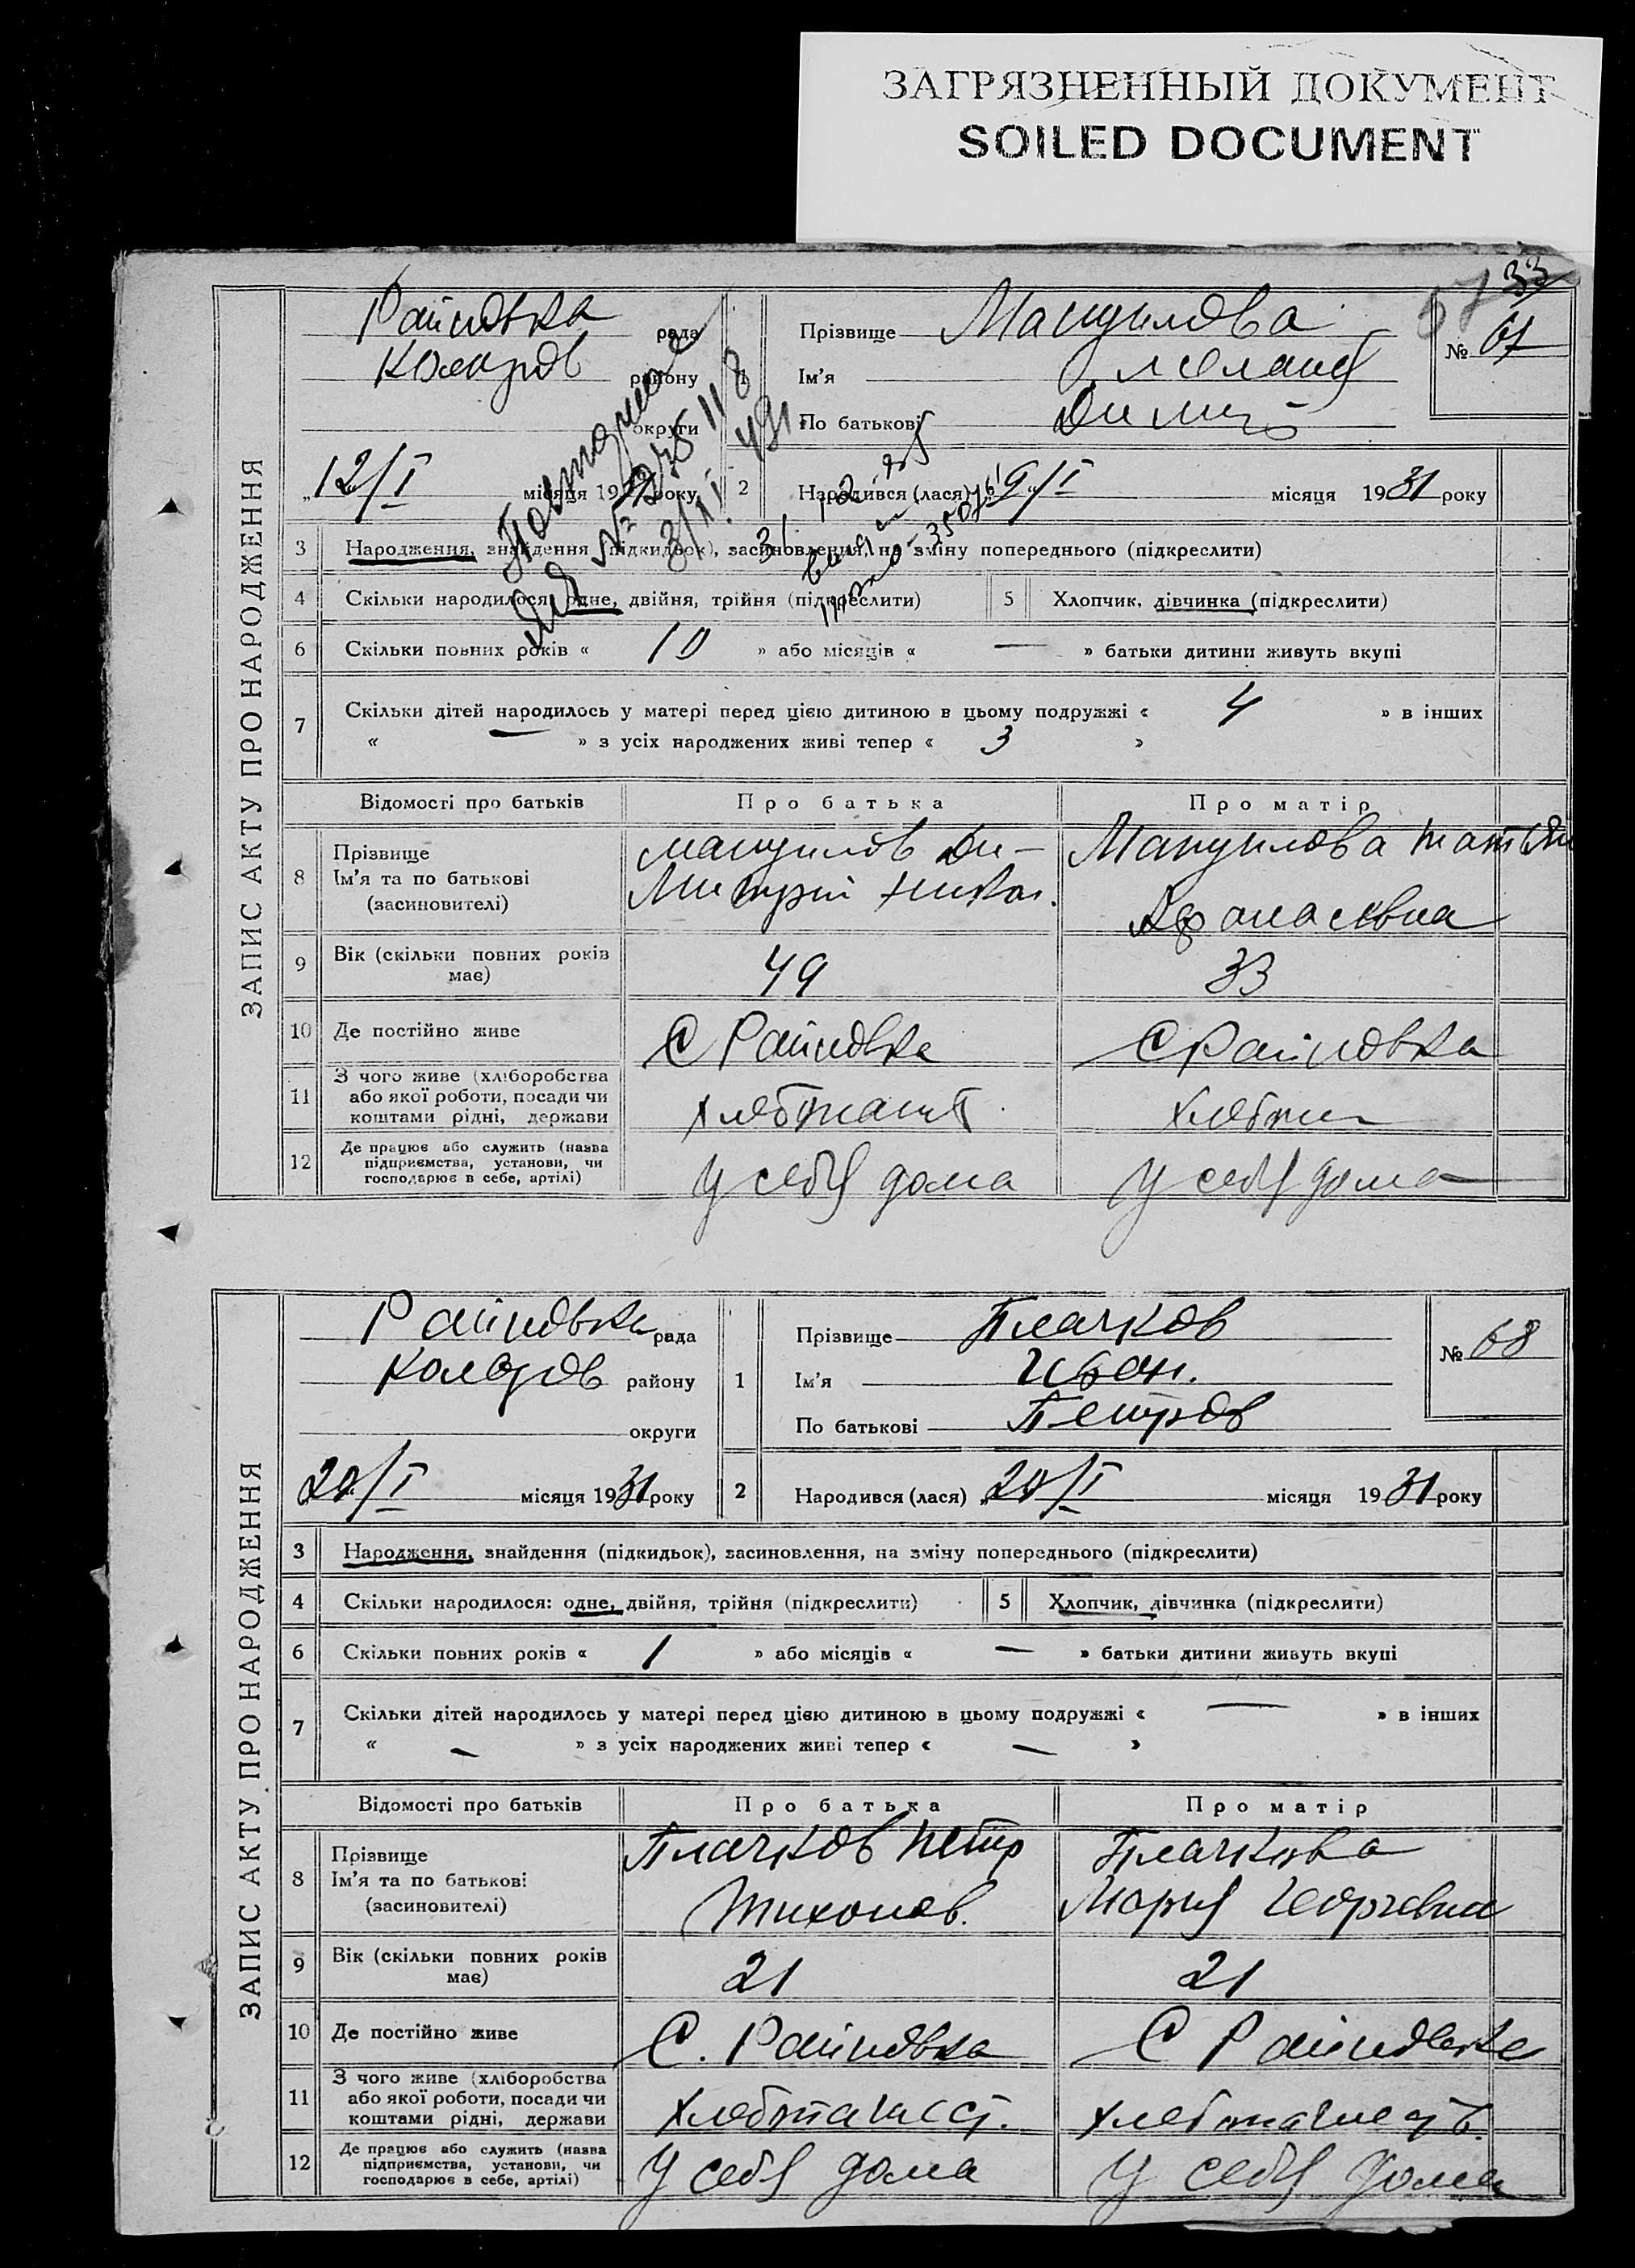 ЗАГРЯЗНЕННЫЙ ДОКУМЕНТ
SOILED DOCUMENT
33
67
ЗАПИС АКТУ ПРО НАРОДЖЕННЯ
Райновка рада
Коларов району
округи
12/I місяця 1931 року
Повторное
3/XI
1
Прізвище Мануилова
Ім'я
По батькові Димит
№ 67
2 Народився (лася) „9“/I місяця 1931 року
3 Народження, знайдення (підкидьок), засиновлення, на зміну попереднього (підкреслити)
4 Скільки народилося: одне, двійня, трійня (підкреслити)
5 Хлопчик, дівчинка (підкреслити)
6 Скільки повних років « 10 » або місяців « — » батьки дитини живуть вкупі
7 Скільки дітей народилось у матері перед цією дитиною в цьому подружжі « 4 » в інших
« — » з усіх народжених живі тепер « 3 »
Відомості про батьків Про батька Про матір
8 Прізвище
Ім'я та по батькові
(засиновителі)
Мануилов Ди-
митрий Никол.
Мануилова Татьян
Афанасевна
9 Вік (скільки повних років
має)
49 33
10 Де постійно живе С Райновка С Райновка
11 З чого живе (хліборобства
або якої роботи, посади чи
коштами рідні, держави
12 Де працює або служить (назва
підприємства, установи, чи
господарює в себе, артілі)
У себя дома У себя дома
ЗАПИС АКТУ ПРО НАРОДЖЕННЯ
Райновка рада
Коларов району
округи
20/I місяця 1931 року
1
Прізвище Плачков
Ім'я Иван.
По батькові Петров
№ 68
2 Народився (лася) „20/I місяця 1931 року
3 Народження, знайдення (підкидьок), засиновлення, на зміну попереднього (підкреслити)
4 Скільки народилося: одне, двійня, трійня (підкреслити)
5 Хлопчик, дівчинка (підкреслити)
6 Скільки повних років « 1 » або місяців « — » батьки дитини живуть вкупі
7 Скільки дітей народилось у матері перед цією дитиною в цьому подружжі « — » в інших
« — » з усіх народжених живі тепер « — »
Відомості про батьків Про батька Про матір
8 Прізвище
Ім'я та по батькові
(засиновителі)
Плачков Петр
Тихонов.
Плачкова
Мария Георгевна
9 Вік (скільки повних років
має)
21 21
10 Де постійно живе С. Райновка С Райновка
11 З чого живе (хліборобства
або якої роботи, посади чи
коштами рідні, держави
12 Де працює або служить (назва
підприємства, установи, чи
господарює в себе, артілі)
У себя дома У себя дома